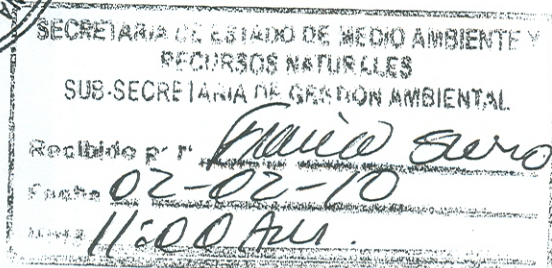 SECRETARIA DE ESTADO DE MEDIO AMBIENTE Y
RECURSOS NATURALES
SUB-SECRETARIA DE GESTION AMBIENTAL
Recibido por
Fecha 02-02-10
11:00 Am.